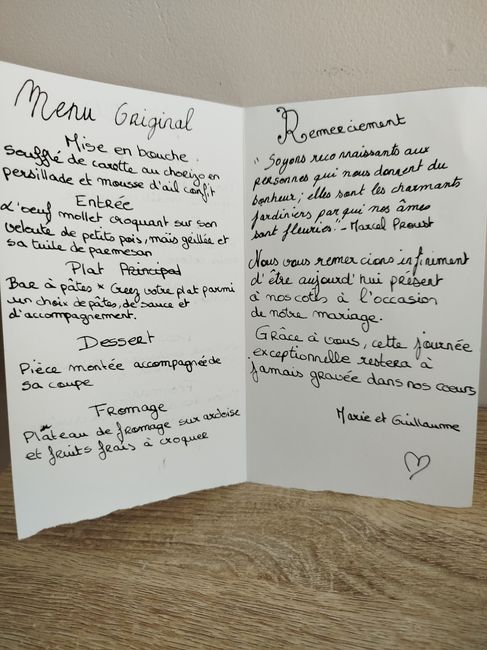 Menu Original
Mise en bouche.
Soufflé de carotte au chorizo en
persillade et mousse d'ail confit
Entrée
L'oeuf mollet croquant sur son
velouté de petits pois, maïs grillée et
sa tuile de parmesan
Plat Principal
Bar à pâtes * Créez votre plat parmi
un choix de pâtes, de sauce et
d'accompagnement.
Dessert
Pièce montée accompagnée de
sa coupe
Fromage
Plateau de fromage sur ardoise
et fruits frais à croquer
Remerciement
"Soyons reconnaissants aux
personnes qui nous donnent du
bonheur; elles sont les charmants
jardiniers par qui nos âmes
sont fleuries" - Marcel Proust
Nous vous remercions infiniment
d'être aujourd'hui présent
à nos côtés à l'occasion
de nôtre mariage.
Grâce à vous, cette journée
exceptionnelle restera à
jamais gravée dans nos coeurs
Marie et Guillaume